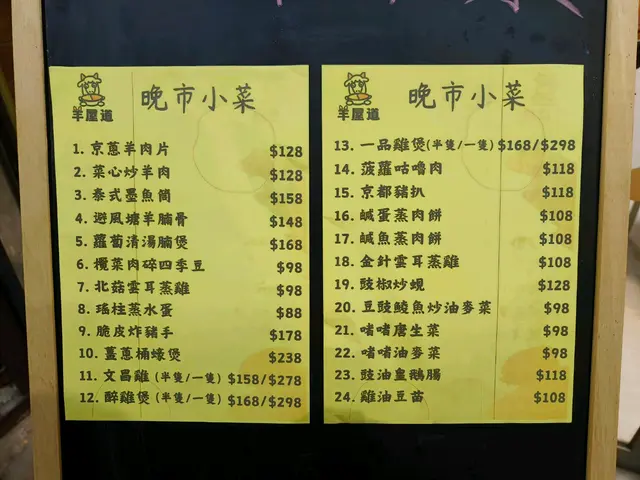 羊屋道
晚市小菜
1. 京蔥羊肉片 $128
2. 菜心炒羊肉 $128
3. 泰式墨魚筒 $158
4. 避風塘羊腩骨 $148
5. 蘿蔔清湯腩煲 $168
6. 欖菜肉碎四季豆 $98
7. 北菇雲耳蒸雞 $98
8. 瑤柱蒸水蛋 $88
9. 脆皮炸豬手 $178
10. 薑蔥桶蠔煲 $238
11. 文昌雞 (半隻/一隻) $158/$278
12. 醉雞煲 (半隻/一隻) $168/$298
羊屋道
晚市小菜
13. 一品雞煲(半隻/一隻) $168/$298
14. 菠蘿咕嚕肉 $118
15. 京都豬扒 $118
16. 鹹蛋蒸肉餅 $108
17. 鹹魚蒸肉餅 $108
18. 金針雲耳蒸雞 $108
19. 豉椒炒蜆 $128
20. 豆豉鯪魚炒油麥菜 $98
21. 啫啫唐生菜 $98
22. 啫啫油麥菜 $98
23. 豉油皇鵝腸 $118
24. 雞油豆苗 $108